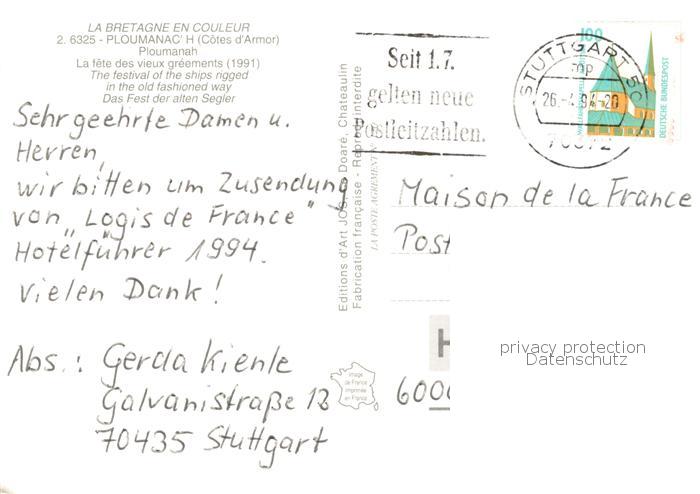 LA BRETAGNE EN COULEUR
2. 6325 - PLOUMANAC'H (Côtes d'Armor)
Ploumanah
La fête des vieux gréements (1991)
The festival of the ships rigged
in the old fashioned way
Das Fest der alten Segler
Sehr geehrte Damen u.
Herren,
wir bitten um Zusendung
von „Logis de France"
Hotelführer 1994.
Vielen Dank!
Abs.: Gerda Kienle
Galvanistraße 13
70435 Stuttgart
Editions d'Art JOS Doaré, Chateaulin
Fabrication française - Reproduction interdite
LA POSTE AGREMENT N°
Image
de France
imprimée
en France
Seit 1.7.
gelten neue
Postleitzahlen.
STUTTGART 50
mp
26.-4.94-20
100
DEUTSCHE BUNDESPOST
Maison de la France
Post
H
600
privacy protection
Datenschutz